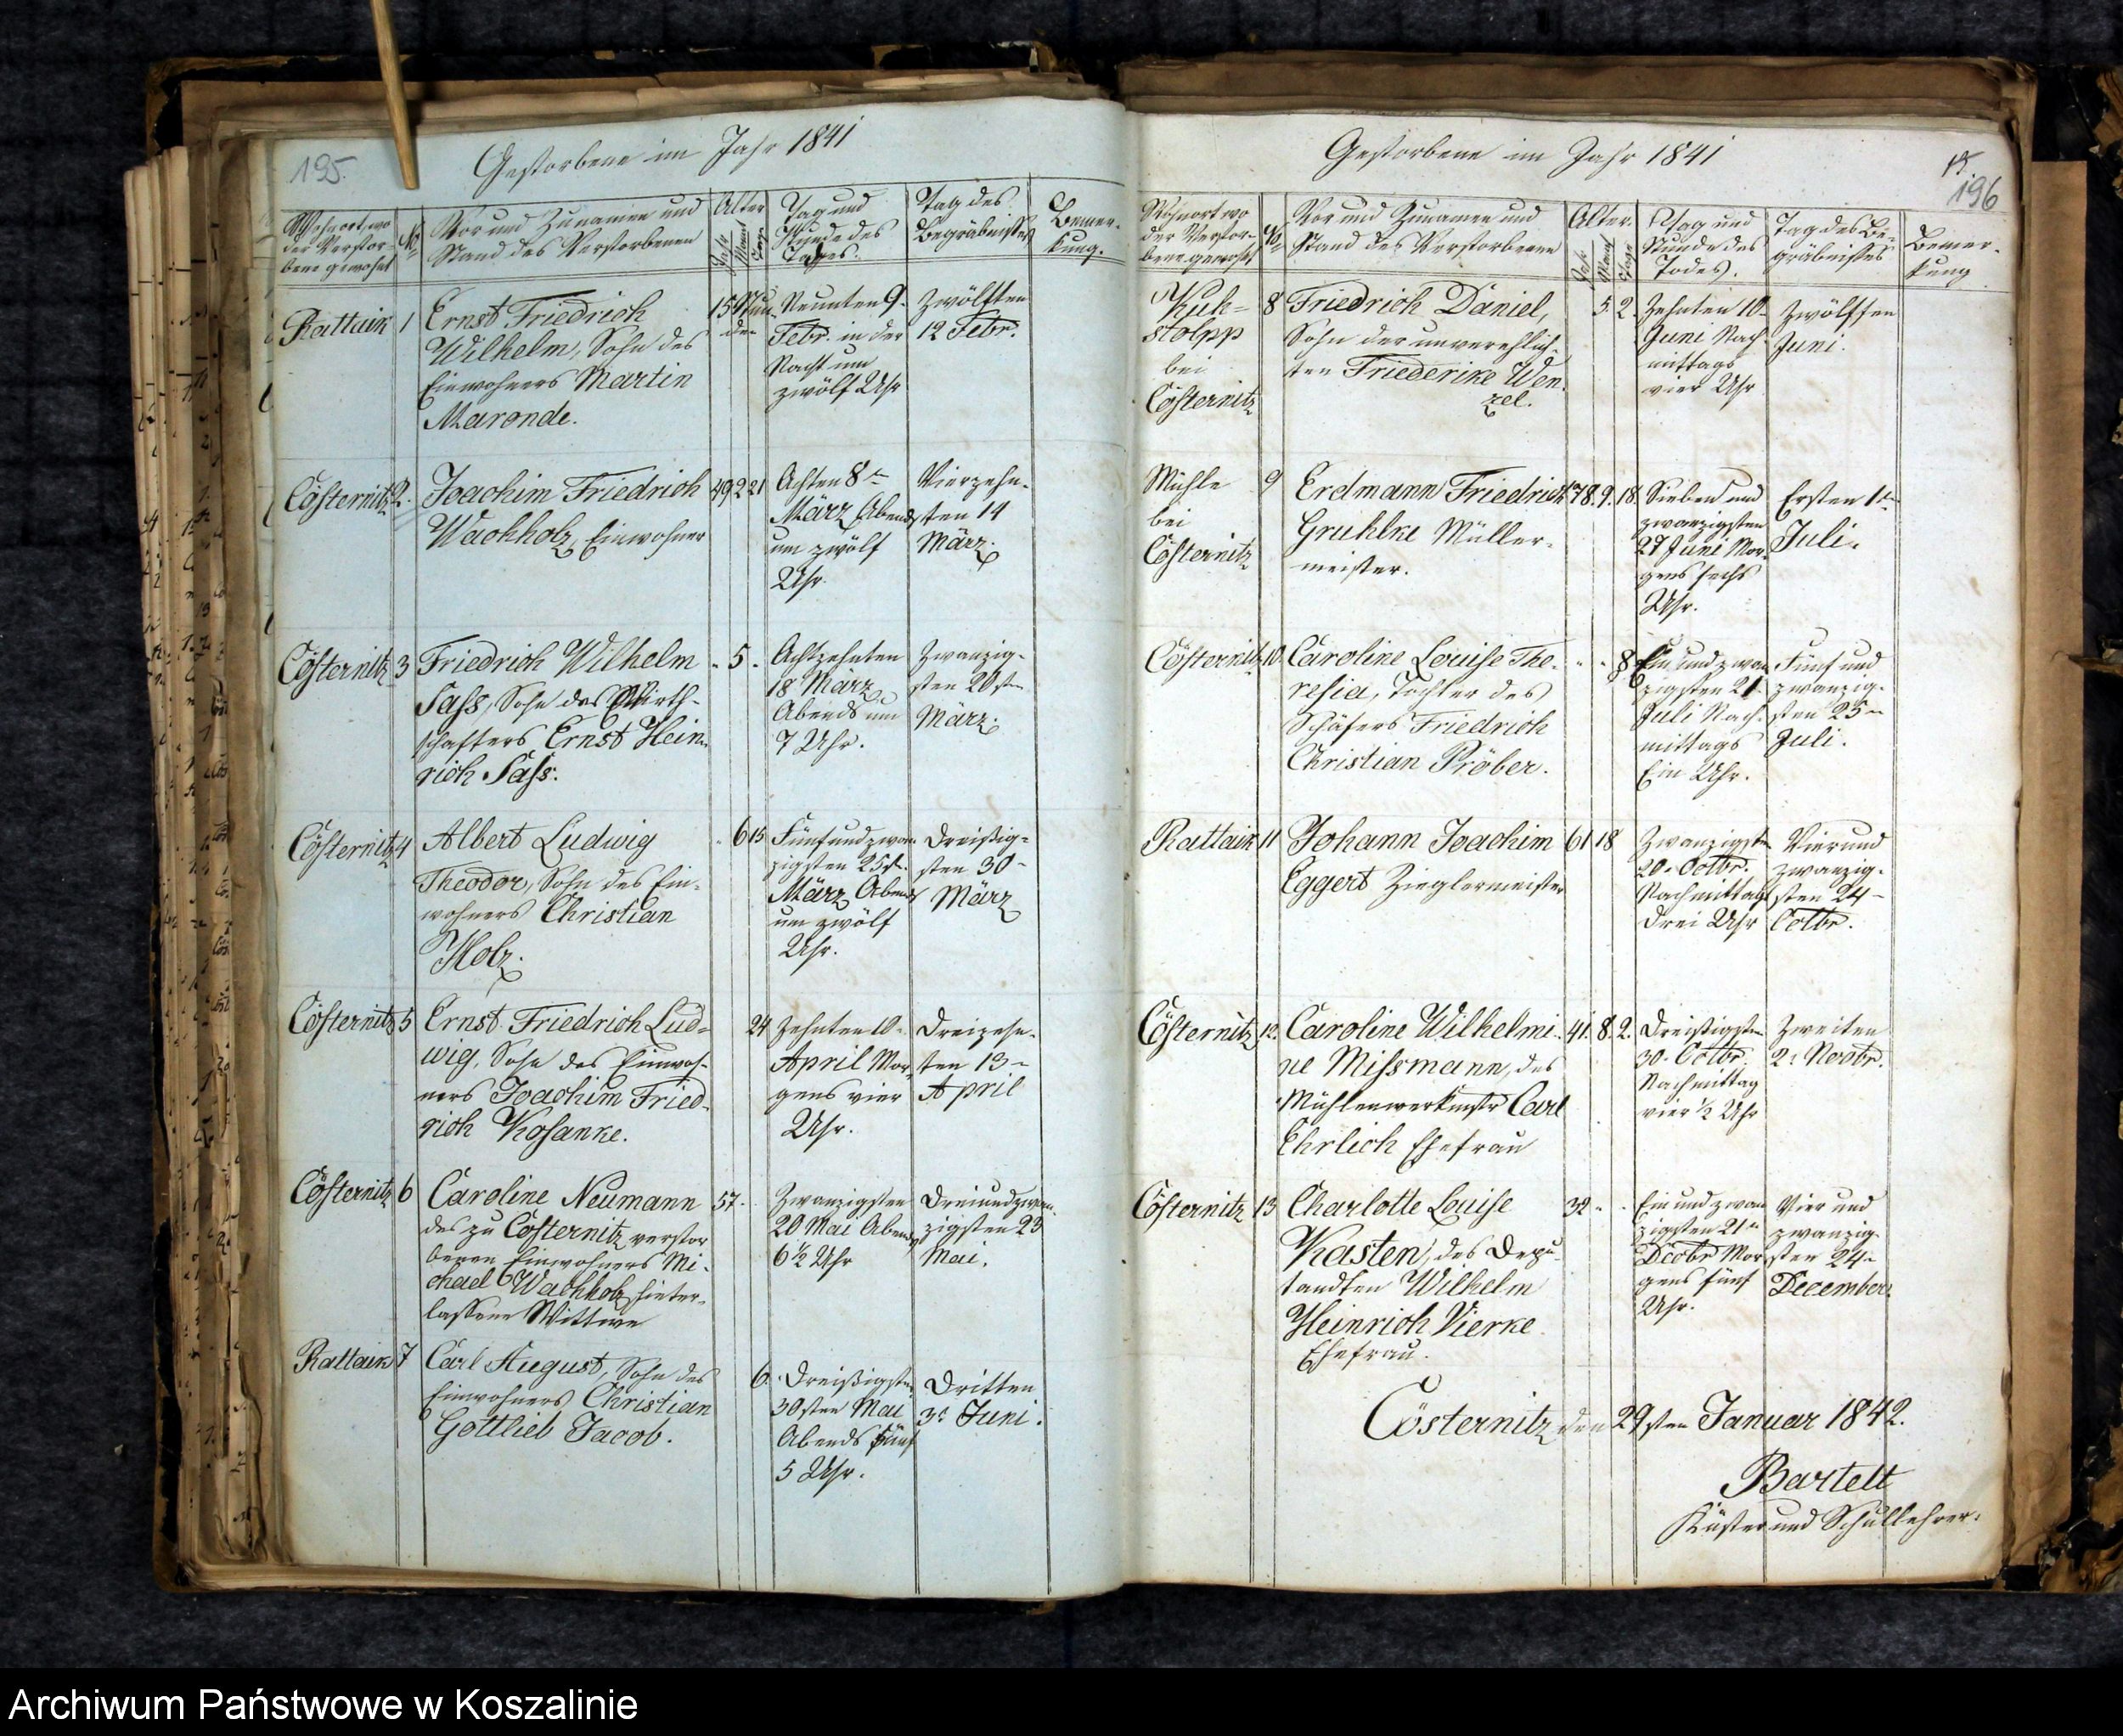 195.
Gestorbene im Jahr 1841
Wohnort, wo
der Verstor-
bene gewohnt
No
Vor und Zunamen und
Stand des Verstorbenen
Alter
Jahr
Monat
Tage
Tag und
Stunde des
Todes.
Tag des
Begräbnisses
Bemer-
kung.
Rattaik 1 Ernst Friedrich
Wilhelm, Sohn des
Einwohners Martin
Maronde.
15 Stun-
den
Neunten 9.
Febr. in der
Nacht um
zwölf Uhr
Zwölften
12 Febr.
Cösternitz 2. Joachim Friedrich
Wachholz, Einwohner
49 2 21
Achten 8ten
März Abends
um zwölf
Uhr.
Vierzehn-
ten 14
März.
Cösternitz 3 Friedrich Wilhelm
Sass, Sohn des Wirth-
schafters Ernst Hein-
rich Sass.
" 5 "
Achtzehnten
18 März
Abends um
7 Uhr.
Zwanzig-
sten 20sten
März.
Cösternitz 4 Albert Ludwig
Theodor, Sohn des Ein-
wohners Christian
Holz.
" 6 15
Fünfundzwan-
zigsten 25st.
März Abends
um zwölf
Uhr.
Dreißig-
sten 30-
März
Cösternitz 5 Ernst Friedrich Lud-
wig, Sohn des Einwoh-
ners Joachim Fried-
rich Kosanke.
24
Zehnten 10-
April Mor-
gens vier
Uhr.
Dreizehn-
ten 13-
April
Cösternitz 6 Caroline Neumann
des zu Cösternitz verstor
benen Einwohners Mi-
chael Wachholz hinter-
lassene Wittwe
57.
Zwanzigsten
20 Mai Abends
6½ Uhr
Dreiundzwan-
zigsten 23
Mai.
Rattaik 7 Carl August, Sohn des
Einwohners Christian
Gottlieb Jacob.
6.
Dreißigsten
30sten Mai
Abends fünf
5 Uhr.
Dritten
3t Juni.
196
Gestorbene im Jahr 1841
Wohnort wo
der Verstor-
bene gewohnt
No
Vor und Zunamen und
Stand des Verstorbenen
Alter.
Jahr
Monat
Tage
Tag und
Stunde des
Todes.
Tag des Be-
gräbnisses
Bemer-
kung
Kuh-
stolpp
bei
Cösternitz
8 Friedrich Daniel,
Sohn der unverehlich-
ten Friederike Wen-
zel.
5. 2.
Zehnten 10-
Juni Nach-
mittags
vier Uhr
Zwölften
Juni.
Mühle
bei
Cösternitz
9 Erdmann Friedrich
Gruhlke Müller-
meister.
78. 9. 18.
Sieben und
zwanzigsten
27 Juni Mor-
gens sechs
Uhr.
Ersten 1ten
Juli.
Cösternitz 10 Caroline Louise The-
resia, Tochter des
Schäfers Friedrich
Christian Pröber.
" " 8
Ein und zwan
zigsten 21.
Juli Nach-
mittags
Ein Uhr.
Fünf und
zwanzig-
sten 25-
Juli.
Rattaik 11 Johann Joachim
Eggert Zieglermeister
61 18
Zwanzigsten
20. Octbr.
Nachmittags
drei Uhr
Vierund
zwanzig-
sten 24-
Octbr.
Cösternitz 12. Caroline Wilhelmi-
ne Missmann, des
Mühlenwerkmstr Carl
Ehrlich Ehefrau
41. 8. 2.
Dreißigsten
30. Octbr.
Nachmittag
vier ½ Uhr
Zweiten
2. Novbr.
Cösternitz 13 Charlotte Louise
Kasten, des Depu-
tandten Wilhelm
Heinrich Vierke
Ehefrau.
32 " "
Ein und zwan
zigsten 21-
Decbr Mor-
gens fünf
Uhr.
Vier und
zwanzig-
sten 24-
December.
Cösternitz den 29sten Januar 1842.
Bartelt
Küster und Schullehrer.
Archiwum Państwowe w Koszalinie